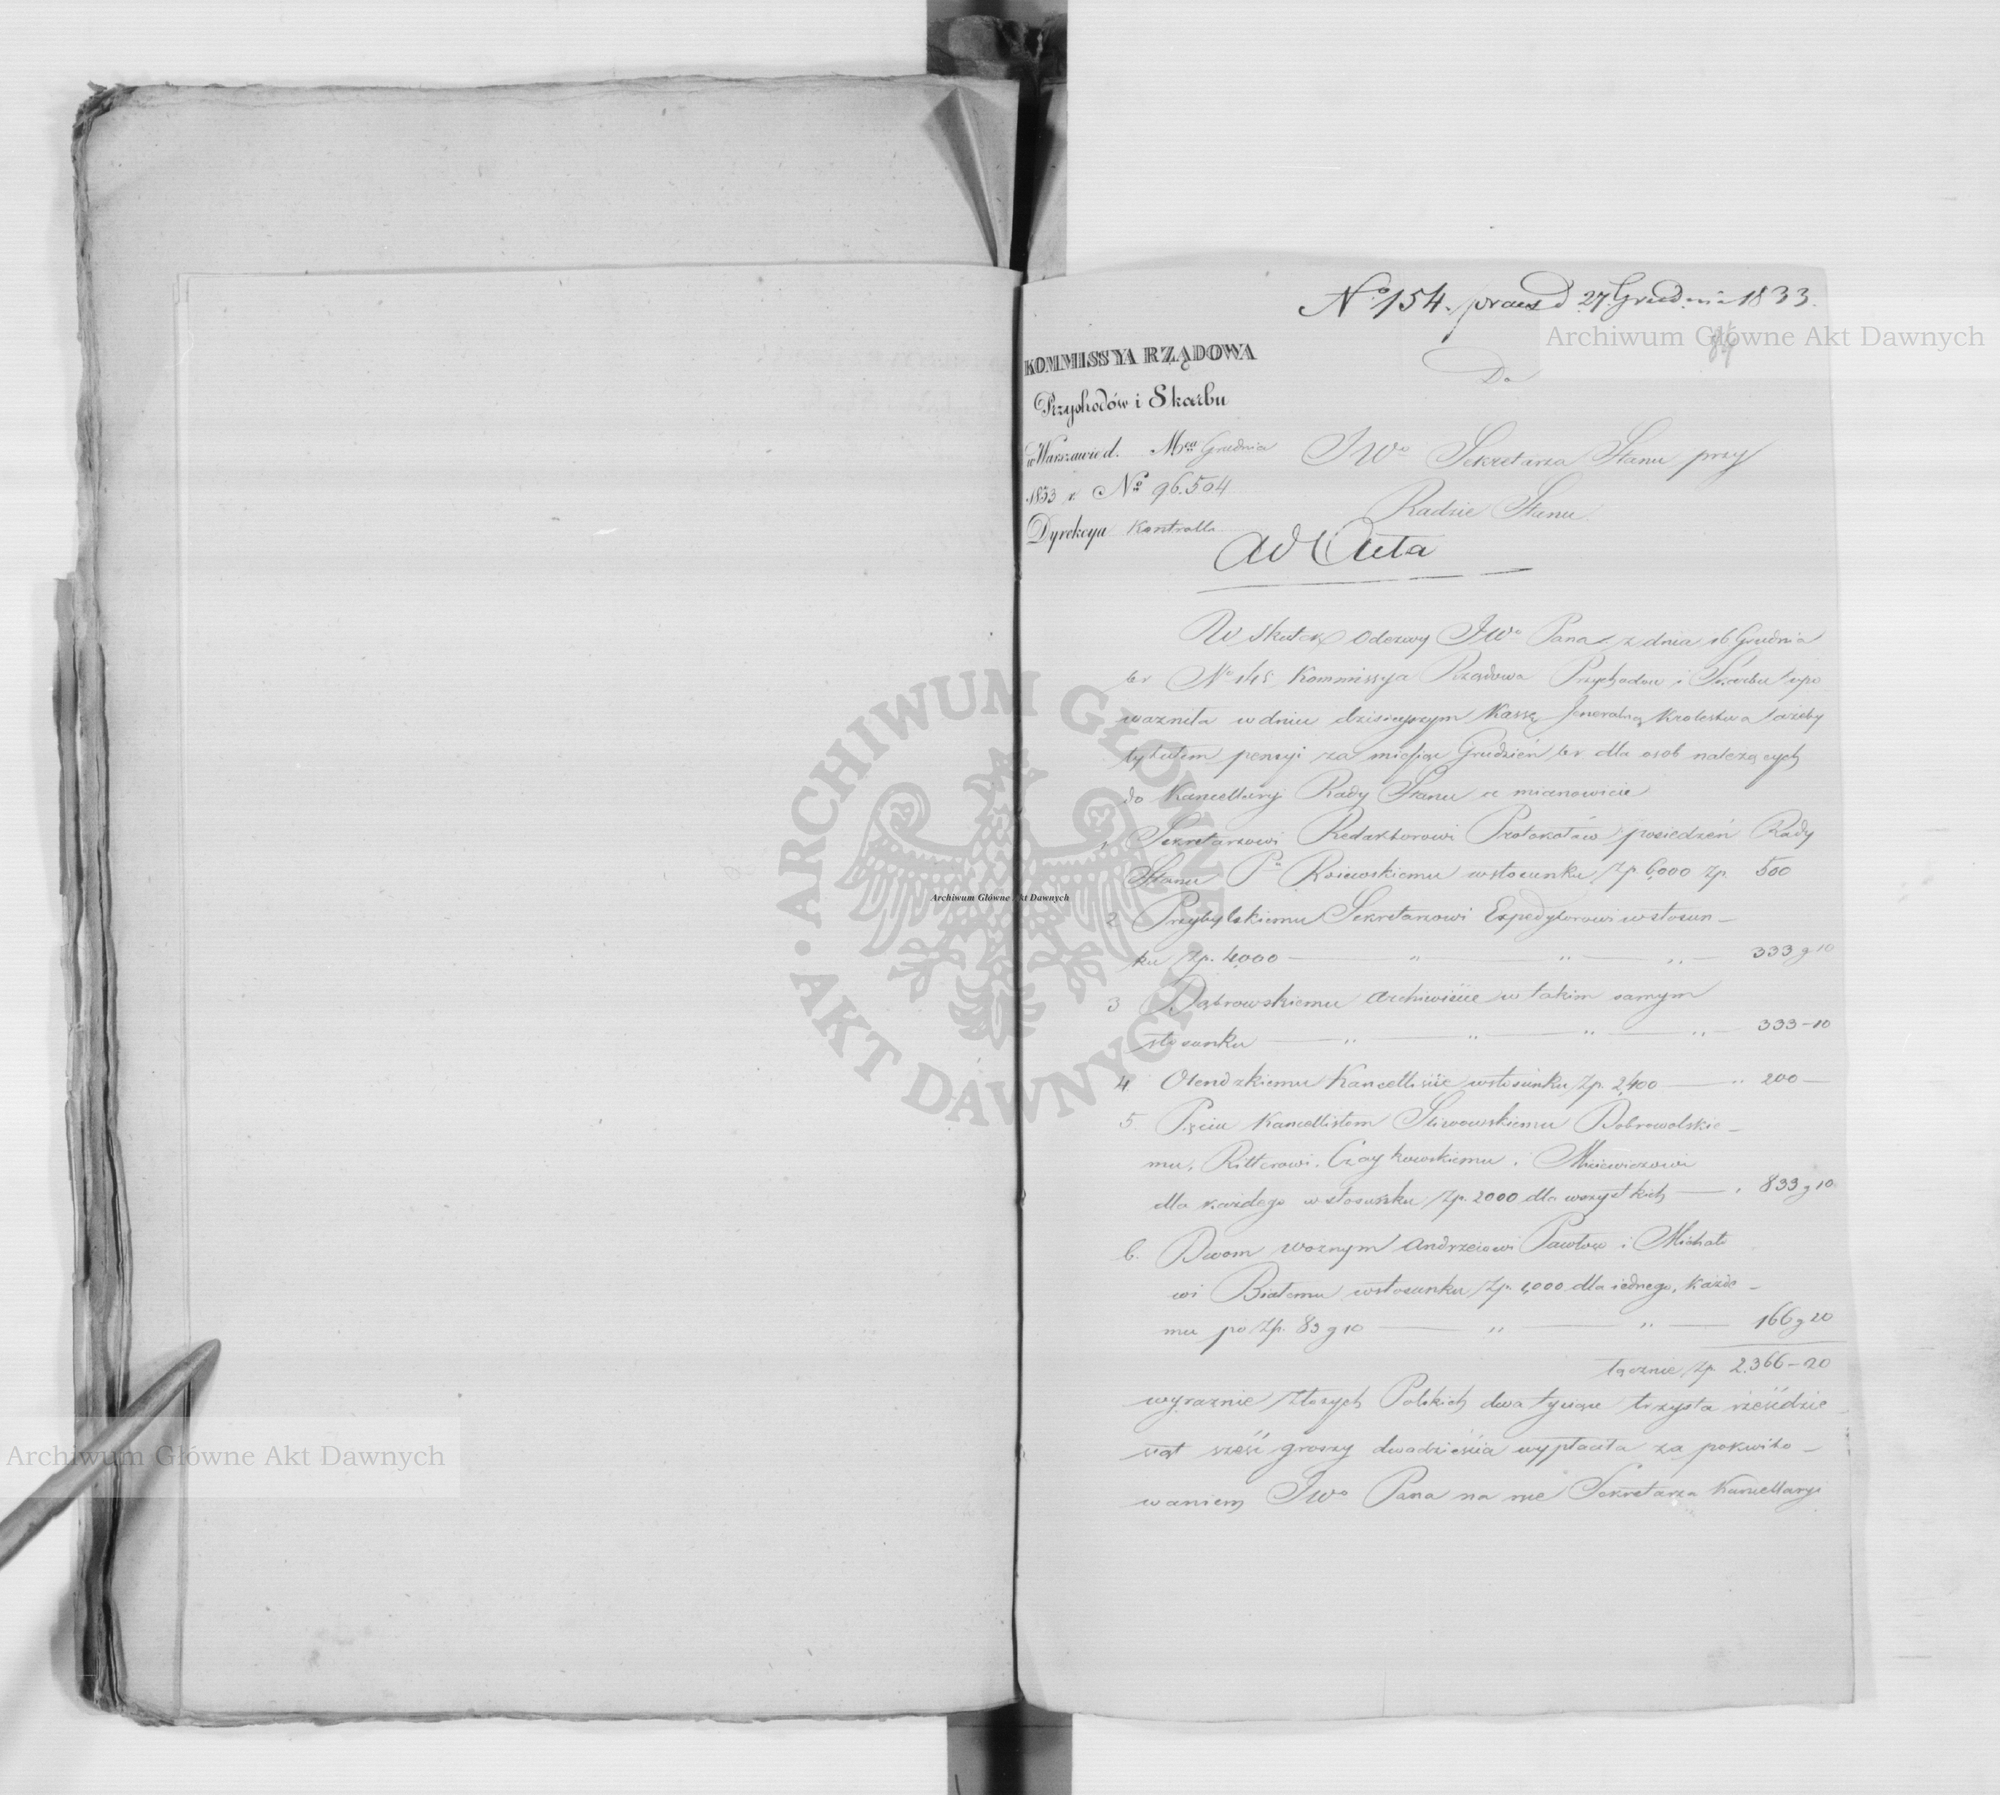 No 154. praes d 27 Grudnia 1833.
84
KOMMISSYA RZĄDOWA
Przychodów i Skarbu
w Warszawie d. Mca Grudnia
1833 r. No 96.504
Dyrekcya Kontrolla
Do
JWo Sekretarza Stanu przy
Radzie Stanu
Ad Acta
W skutek odezwy JWo Pana z dnia 16 Grudnia
br No 145 Kommissya Rządowa Przychodow i Skarbu upo
ważniła w dniu dzisieyszym Kassę Jeneralną Krolestwa ażeby
tytułem pensyi za miesiąc Grudzień br dla osob należących
do Kancellaryi Rady Stanu a mianowicie
1 Sekretarzowi Redaktorowi Protokołów posiedzeń Rady
Stanu Pu Rosiewskiemu w stosunku Zp 6,000 Zp. 500
2 Przybylskiemu Sekretarzowi Expedytorowi w stosun-
ku Zp. 4,000 — " — " — " — 333 g 10
3 Dąbrowskiemu Archiwiście w takim samym
stosunku — " — " — " — " — 333-10
4 Olendzkiemu Kancelliście w stosunku Zp. 2,400 — " 200 —
5. Pięciu Kancellistom Śliwowskiemu Dobrowolskie-
mu, Ritterowi, Czaykowskiemu i Misiewiczowi
dla każdego w stosunku Zp. 2000 dla wszystkich — " 833 g 10
6. Dwom woznym Andrzeiowi Pawłow i Michało
wi Białemu w stosunku Zp. 1,000 dla iednego, każde-
mu po Zp. 83 g 10 — " — " — 166 g 20
łącznie Zp. 2,366-20
wyraznie Złotych Polskich dwa tysiące trzysta sześćdzie
siąt sześć groszy dwadzieścia wypłaciła za pokwito-
waniem JWo Pana na ręce Sekretarza Kancellaryi
Archiwum Główne Akt Dawnych
Archiwum Główne Akt Dawnych
Archiwum Główne Akt Dawnych
ARCHIWUM GŁÓWNE · AKT DAWNYCH ·